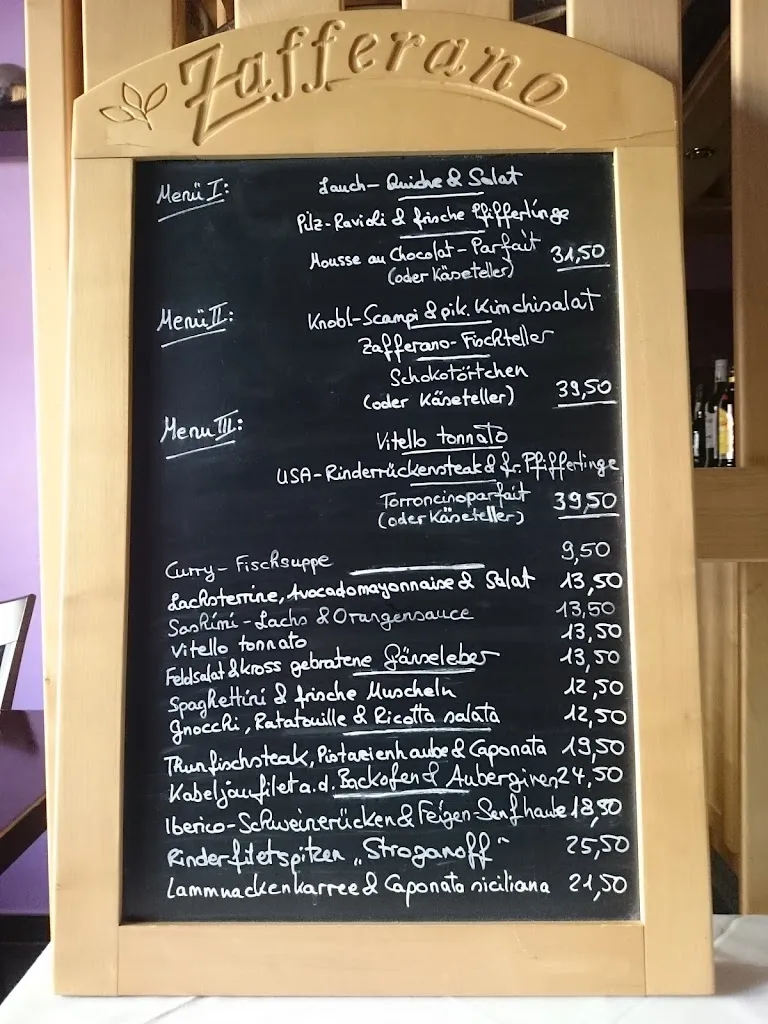 Zafferano
Menü I:
Lauch-Quiche & Salat
Pilz-Ravioli & frische Pfifferlinge
Mousse au Chocolat-Parfait
(oder Käseteller) 31,50
Menü II:
Knobl-Scampi & pik. Kimchisalat
Zafferano-Fischteller
Schokotörtchen
(oder Käseteller) 39,50
Menu III:
Vitello tonnato
USA-Rinderrückensteak & fr. Pfifferlinge
Torroncinoparfait
(oder Käseteller) 39,50
Curry-Fischsuppe 9,50
Lachsterrine, Avocadomayonnaise & Salat 13,50
Sashimi-Lachs & Orangensauce 13,50
Vitello tonnato 13,50
Feldsalat & kross gebratene Gänseleber 13,50
Spaghettini & frische Muscheln 12,50
Gnocchi, Ratatouille & Ricotta salata 12,50
Thunfischsteak, Pistazienhaube & Caponata 19,50
Kabeljaufilet a.d. Backofen & Auberginen 24,50
Iberico-Schweinerücken & Feigen-Senfhaube 18,50
Rinderfiletspitzen „Stroganoff" 25,50
Lammnackenkarree & Caponata siciliana 21,50